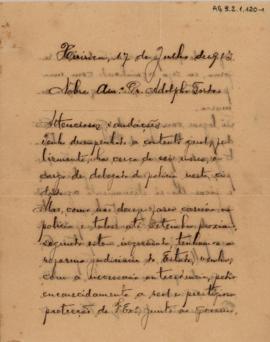 AG 9.2.1.120-1
17 de Julho de 913
Nobre Am.º Dr. Adolpho Gordo
Attenciosas saudações
Venho desempenhando a contento geral, pu-
blicamente, ha cerca de seis mezes, o
cargo de delegado de policia nesta ci-
dade.
Mas, como me desejo fazer carreira na
policia e talvez até Setembro proximo,
segundo estou informado, tenhamos a
reforma judiciaria do Estado, venho,
com a necessaria antecedencia, pedir
encarecidamente a real e prestigiosa
protecção de V. Ex.ª junto ao governo,